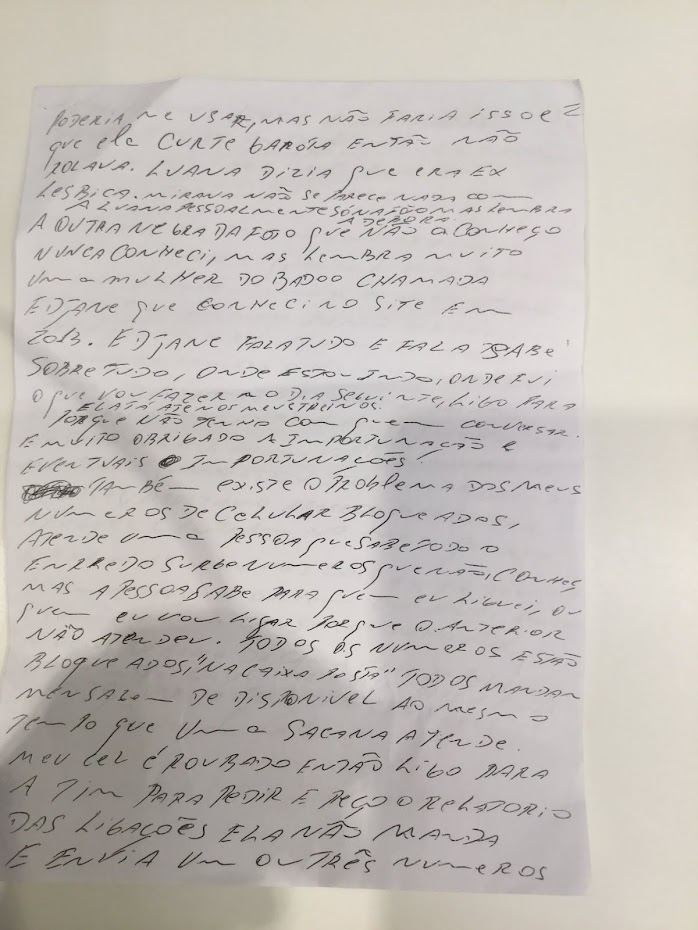 PODERIA ME USAR, MAS NÃO FARIA ISSO E
que ela CURTE GAROTA ENTÃO NÃO
ROLAVA. LUANA DIZIA que ERA EX
LESBICA. MIRANA NÃO SE PARECE NADA COM
A LUANA PESSOALMENTE SÓ NA FOTO MAS LEMBRA
A DEBORA.
A OUTRA NEGRA DA FOTO que NÃO A CONHEÇO
NUNCA CONHECI, MAS LEMBRA MUITO
UMA MULHER DO BADOO CHAMADA
EDJANE que CONHECI NO SITE EM
2013. EDJANE FALA TUDO E FALA SABE
SOBRE TUDO, ONDE ESTOU INDO, ONDE FUI
O que VOU FAZER NO DIA SEGUINTE, LIGO PARA
ELA TÁ ATÉ NOS MEUS TREINOS.
PORQUE NÃO TENHO COM quem CONVERSAR.
E MUITO OBRIGADO A IMPORTUNAÇÃO E
EVENTUAIS IMPORTUNAÇÕES.
TAMBÉM EXISTE O PROBLEMA DOS MEUS
NUMEROS DE CELULAR BLOQUEADOS,
ATENDE UMA PESSOA que SABE TODO O
ENREDO SURGE NUMEROS que NÃO CONHEÇ
MAS A PESSOA SABE PARA quem EU LIGUEI, OU
quem EU VOU LIGAR PORQUE O ANTERIOR
NÃO ATENDEU. TODOS OS NUMEROS ESTÃO
BLOQUEADOS, "NA CAIXA POSTA" TODOS MANDAM
MENSAGEM DE DISPONIVEL AO MESMO
TEMPO que UMA SACANA ATENDE.
MEU CEL É ROUBADO ENTÃO LIGO PARA
A TIM PARA PEDIR E PEÇO O RELATORIO
DAS LIGAÇÕES ELA NÃO MANDA
E ENVIA UM OU TRÊS NUMEROS